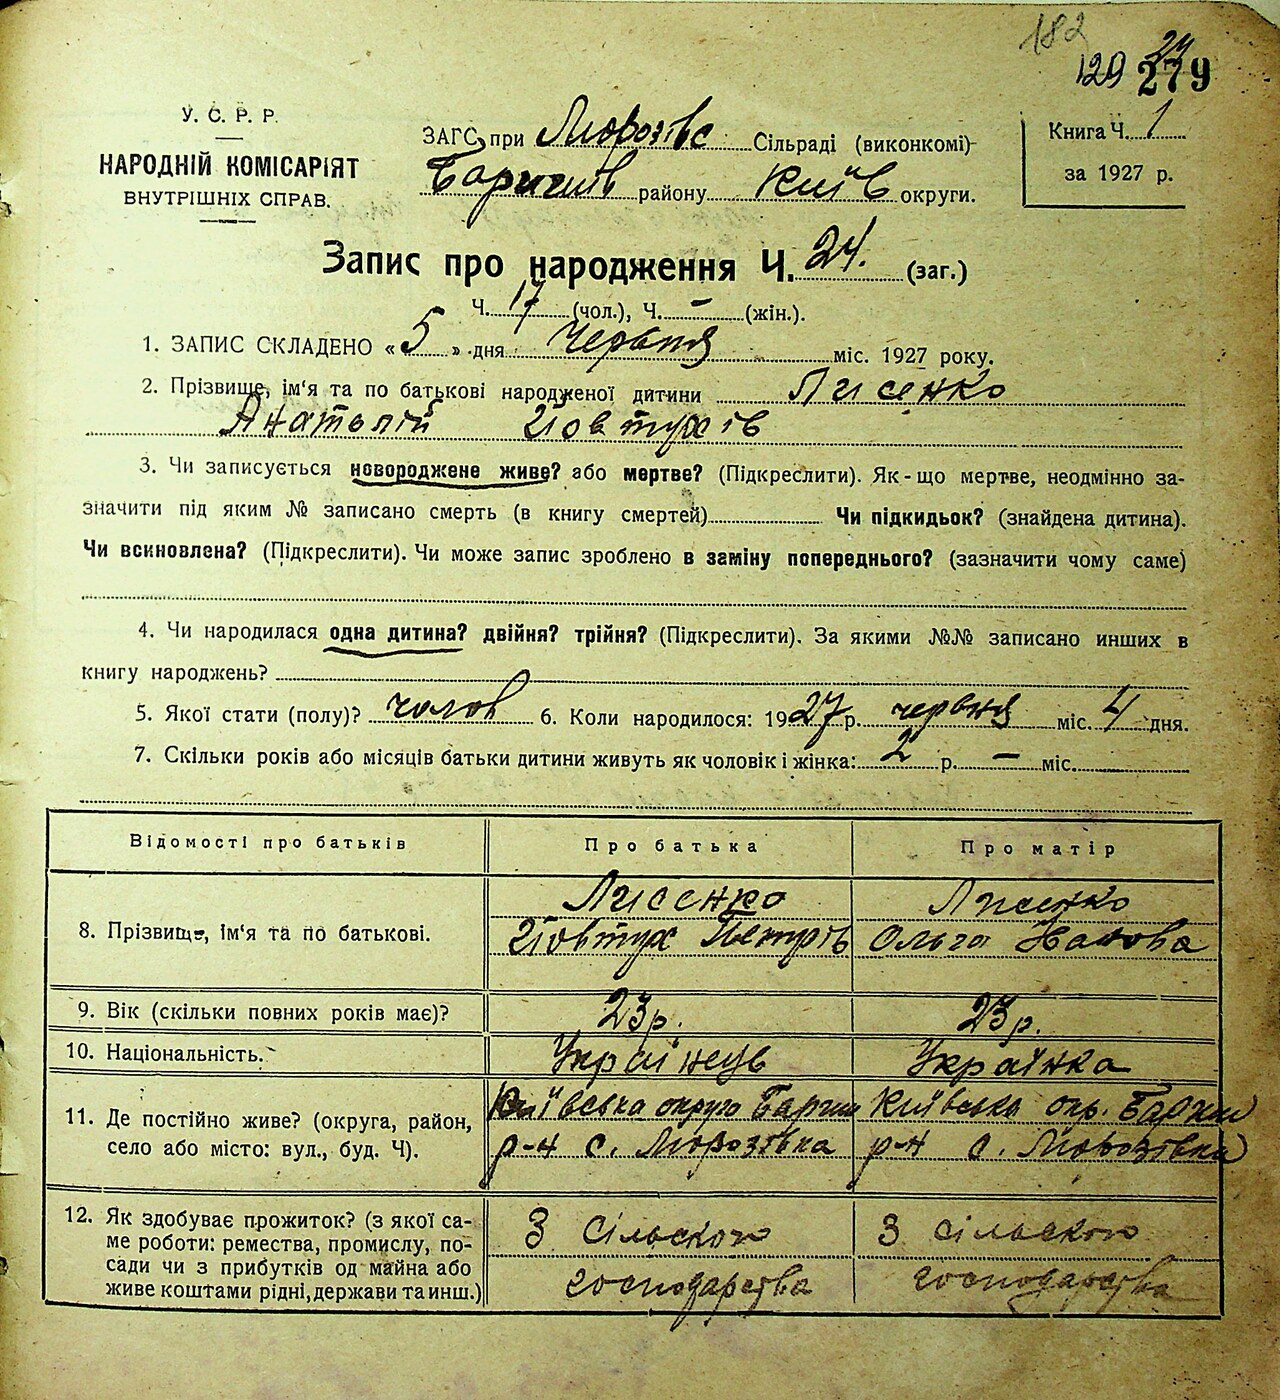 182
129 24 279
У. С. Р. Р.
НАРОДНІЙ КОМІСАРІЯТ
ВНУТРІШНІХ СПРАВ.
ЗАГС при Морозівс Сільраді (виконкомі)
Баришів району Київ округи.
Книга Ч. 1
за 1927 р.
Запис про народження Ч. 24. (заг.)
Ч. 17 (чол.), Ч. – (жін.).
1. ЗАПИС СКЛАДЕНО «5» дня червня міс. 1927 року.
2. Прізвище, ім'я та по батькові народженої дитини Лисенко
Анатолій Йовтухів
3. Чи записується новороджене живе? або мертве? (Підкреслити). Як-що мертве, неодмінно за-
значити під яким № записано смерть (в книгу смертей) Чи підкидьок? (знайдена дитина).
Чи всиновлена? (Підкреслити). Чи може запис зроблено в заміну попереднього? (зазначити чому саме)
4. Чи народилася одна дитина? двійня? трійня? (Підкреслити). За якими №№ записано инших в
книгу народжень?
5. Якої стати (полу)? чолов 6. Коли народилося: 1927 р. червня міс. 4 дня.
7. Скільки років або місяців батьки дитини живуть як чоловік і жінка: 2 р. – міс.
Відомості про батьків Про батька Про матір
8. Прізвище, ім'я та по батькові.
Лисенко
Йовтух Петрів
Лисенко
Ольга
9. Вік (скільки повних років має)? 23 р. 23 р.
10. Національність. Українець Українка
11. Де постійно живе? (округа, район,
село або місто: вул., буд. Ч).
Київська округа Бариш
р-н с. Морозівка
Київська окр. Бариш
р-н с. Морозівка
12. Як здобуває прожиток? (з якої са-
ме роботи: ремества, промислу, по-
сади чи з прибутків од майна або
живе коштами рідні, держави та инш.)
З сільского
господарства
З сільского
господарства